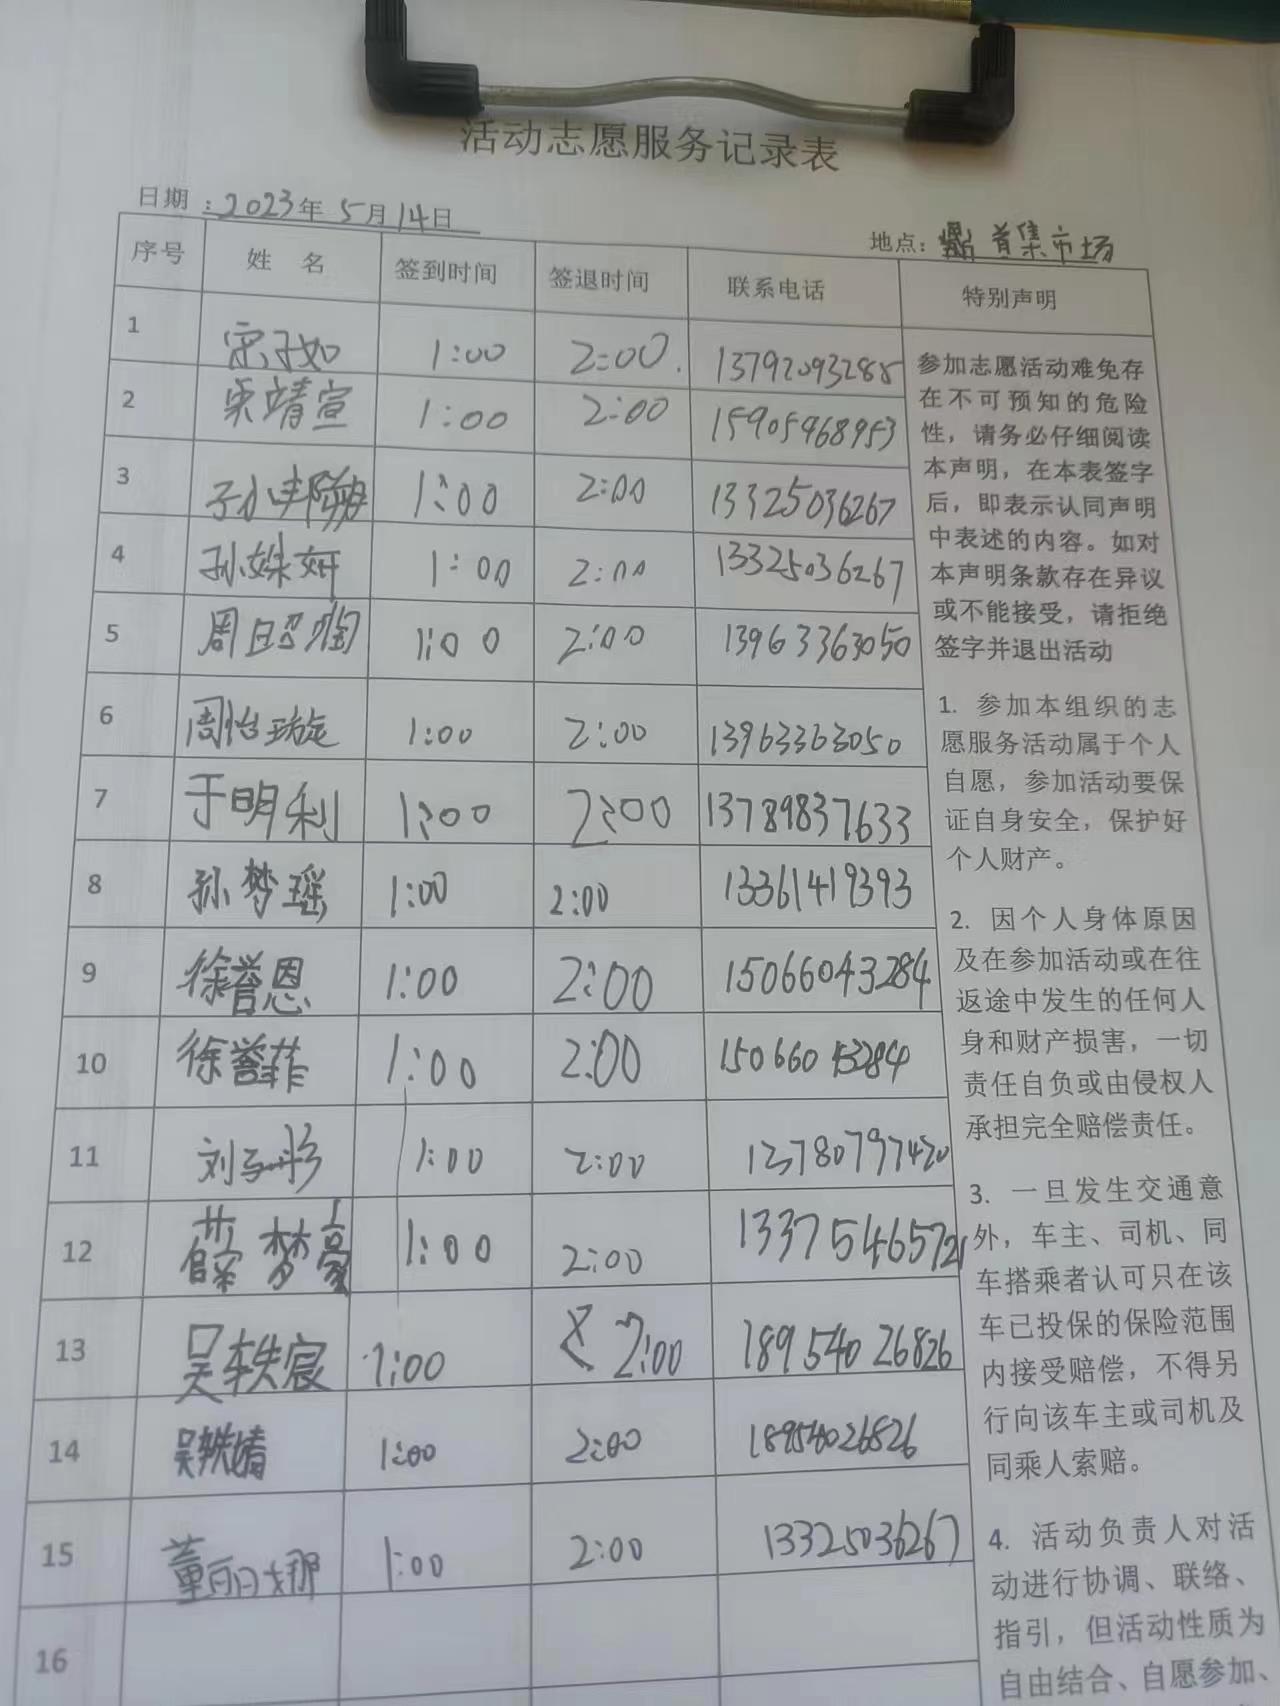 活动志愿服务记录表
日期：2023年5月14日
地点：首集市场
序号 姓名 签到时间 签退时间 联系电话 特别声明
1 宋子如 1:00 2:00. 13792093288
2 栾靖宣 1:00 2:00 15905968953
3 1:00 2:00 13325036267
4 孙姝妍 1:00 2:00 13325036267
5 周 1:00 2:00 13963363050
6 周怡璇 1:00 2:00 13963363050
7 于明利 1:00 2:00 13789837633
8 孙梦瑶 1:00 2:00 13361419393
9 徐誉恩 1:00 2:00 15066043284
10 徐誉菲 1:00 2:00 15066043284
11 刘 1:00 2:00 13780797420
12 薛梦豪 1:00 2:00 13375465721
13 吴轶宸 1:00 2:00 18954026826
14 吴轶婧 1:00 2:00 18954026826
15 董丽娜 1:00 2:00 13325036267
16
参加志愿活动难免存
在不可预知的危险
性，请务必仔细阅读
本声明，在本表签字
后，即表示认同声明
中表述的内容。如对
本声明条款存在异议
或不能接受，请拒绝
签字并退出活动
1. 参加本组织的志
愿服务活动属于个人
自愿，参加活动要保
证自身安全，保护好
个人财产。
2. 因个人身体原因
及在参加活动或在往
返途中发生的任何人
身和财产损害，一切
责任自负或由侵权人
承担完全赔偿责任。
3. 一旦发生交通意
外，车主、司机、同
车搭乘者认可只在该
车已投保的保险范围
内接受赔偿，不得另
行向该车主或司机及
同乘人索赔。
4. 活动负责人对活
动进行协调、联络、
指引，但活动性质为
自由结合、自愿参加、